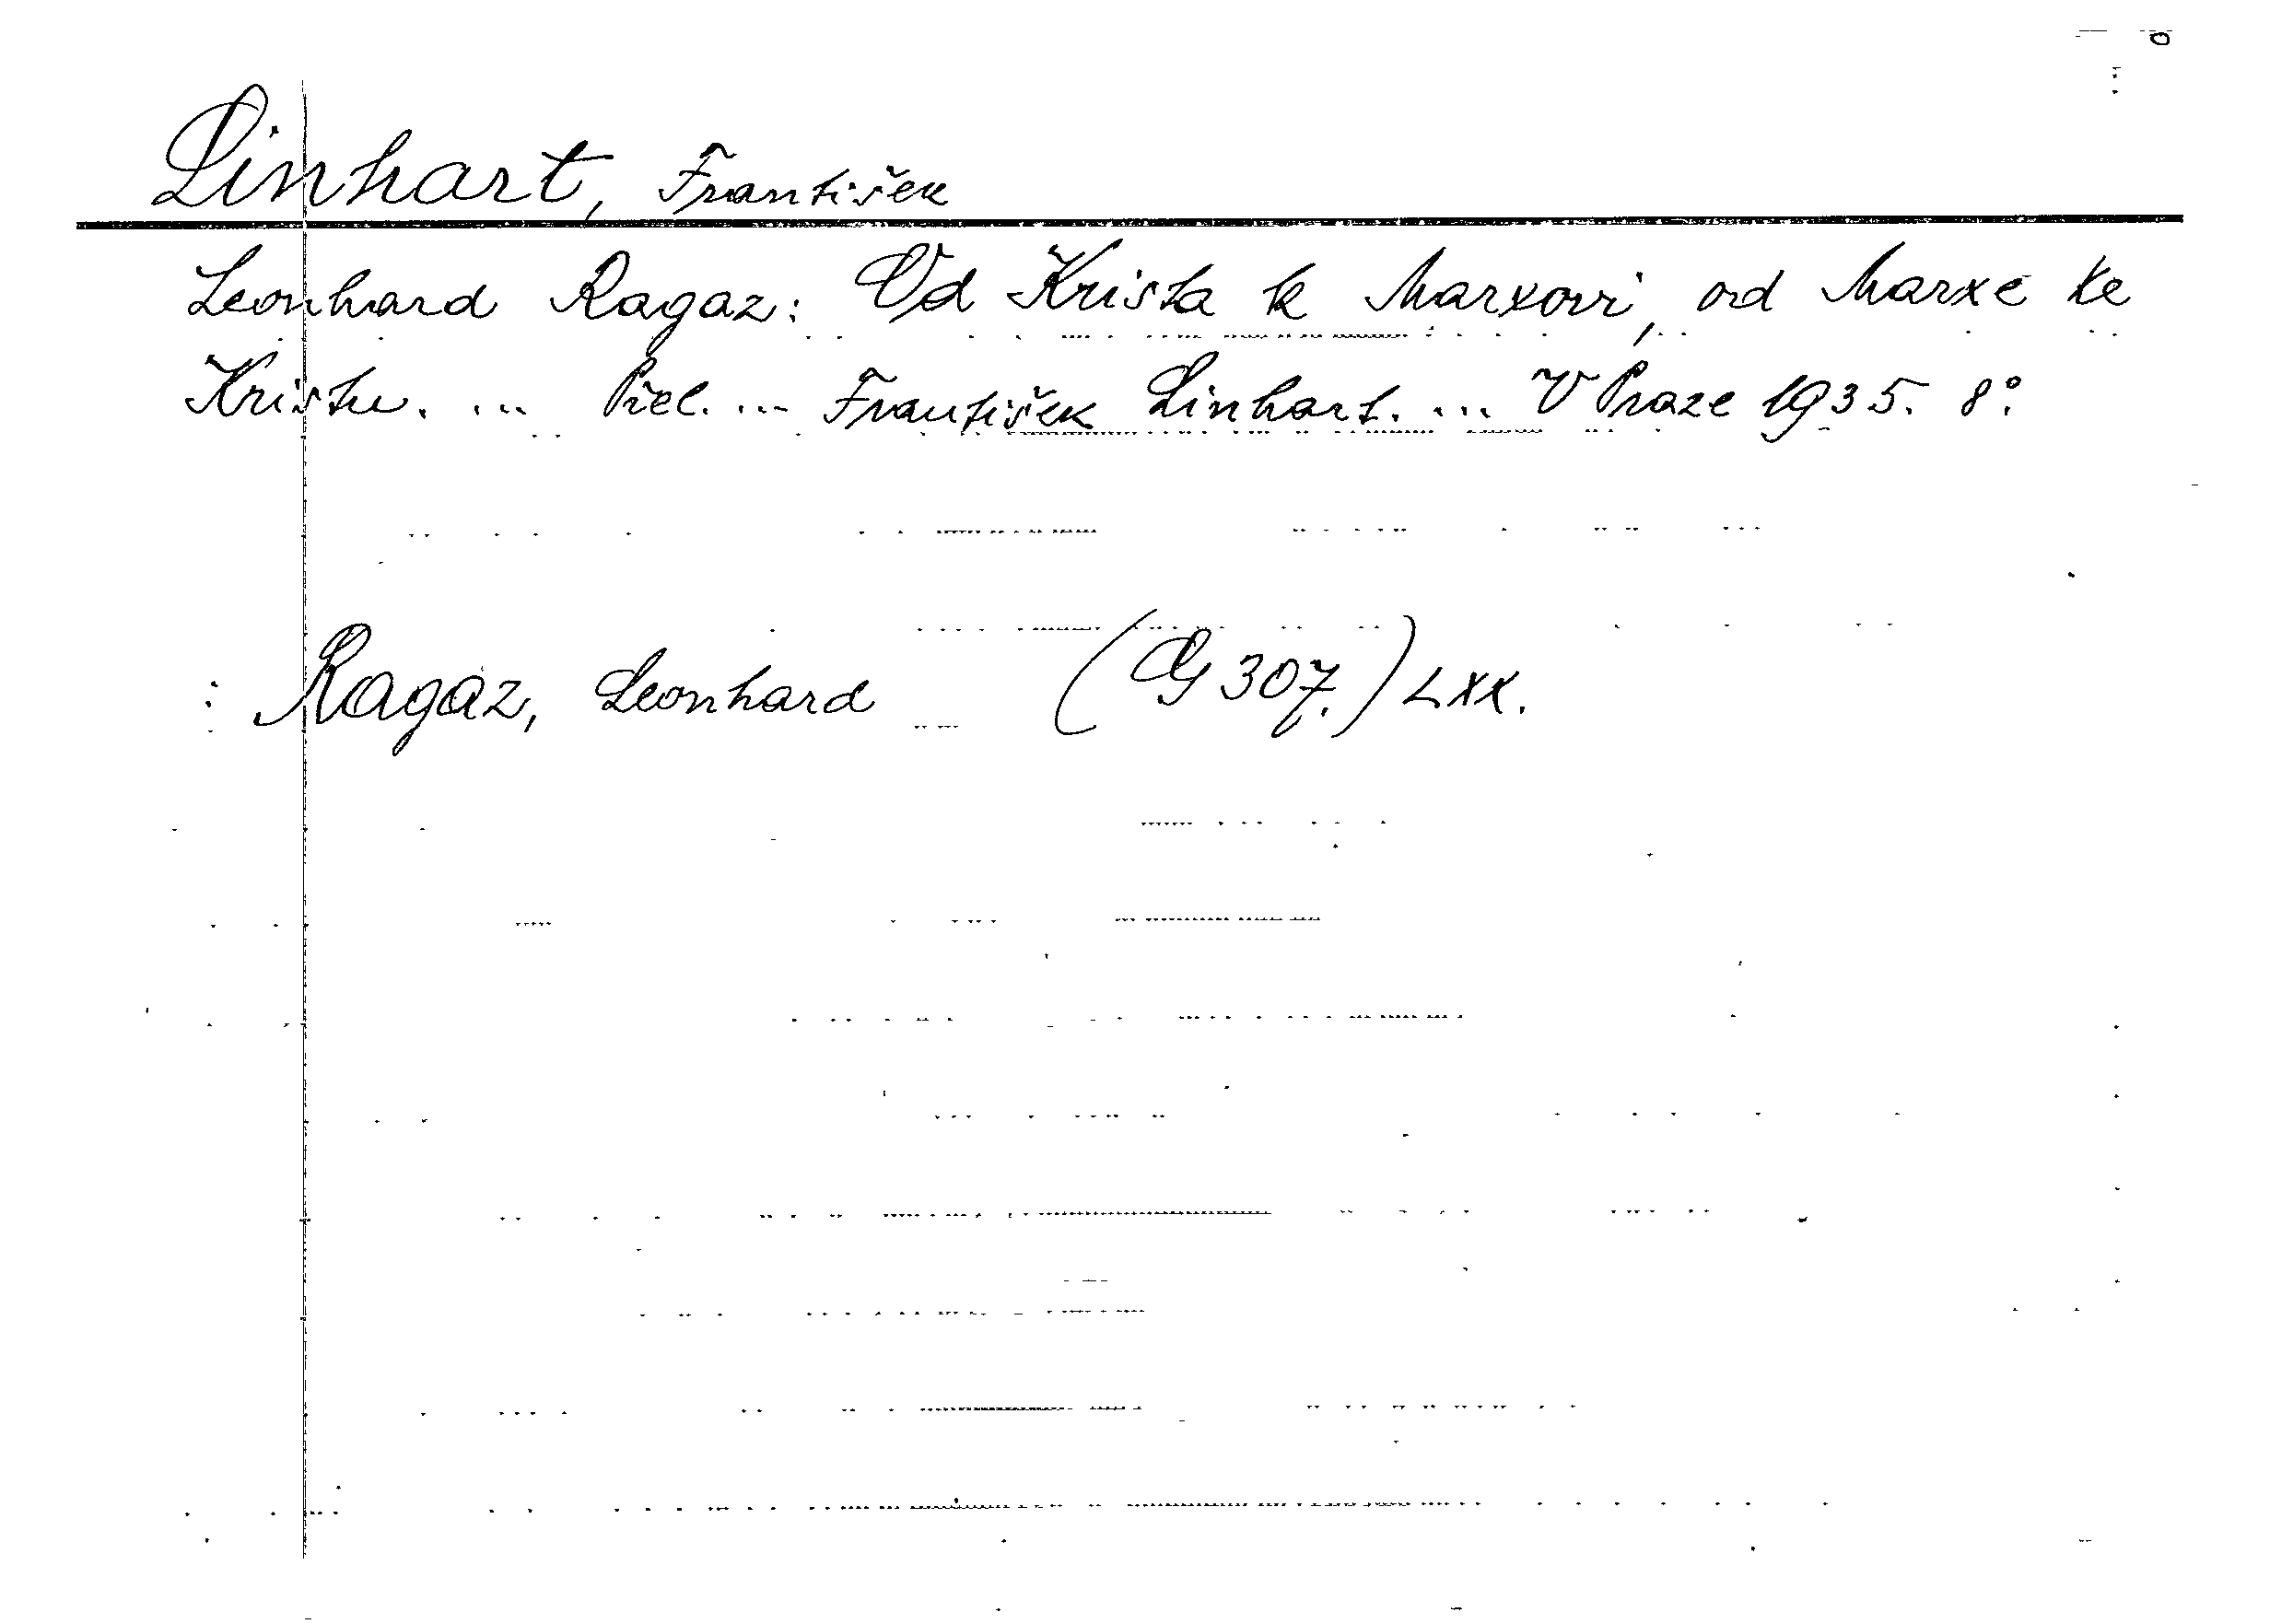 Linhart, František
Leonhard Ragaz: Od Krista k Marxovi, od Marxe ke
Kristu. ... Přel. ... František Linhart. ... V Praze 1935. 8°.
: Ragaz, Leonhard (G 307.) LXX.